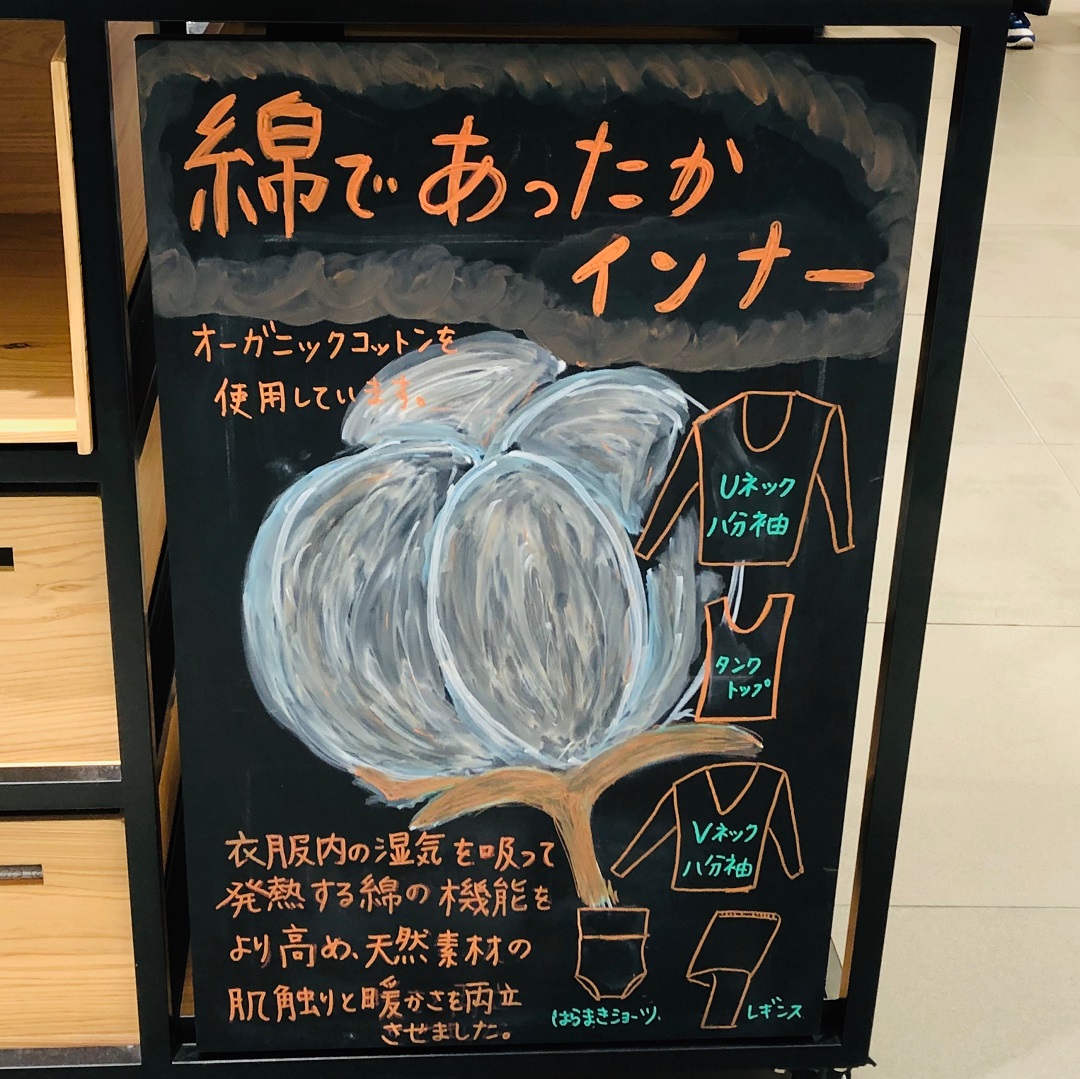 綿であったか
インナー
オーガニックコットンを
使用しています。
Uネック
八分袖
タンク
トップ
Vネック
八分袖
衣服内の湿気を吸って
発熱する綿の機能を
より高め、天然素材の
肌触りと暖かさを両立
させました。
はらまきショーツ、
レギンス